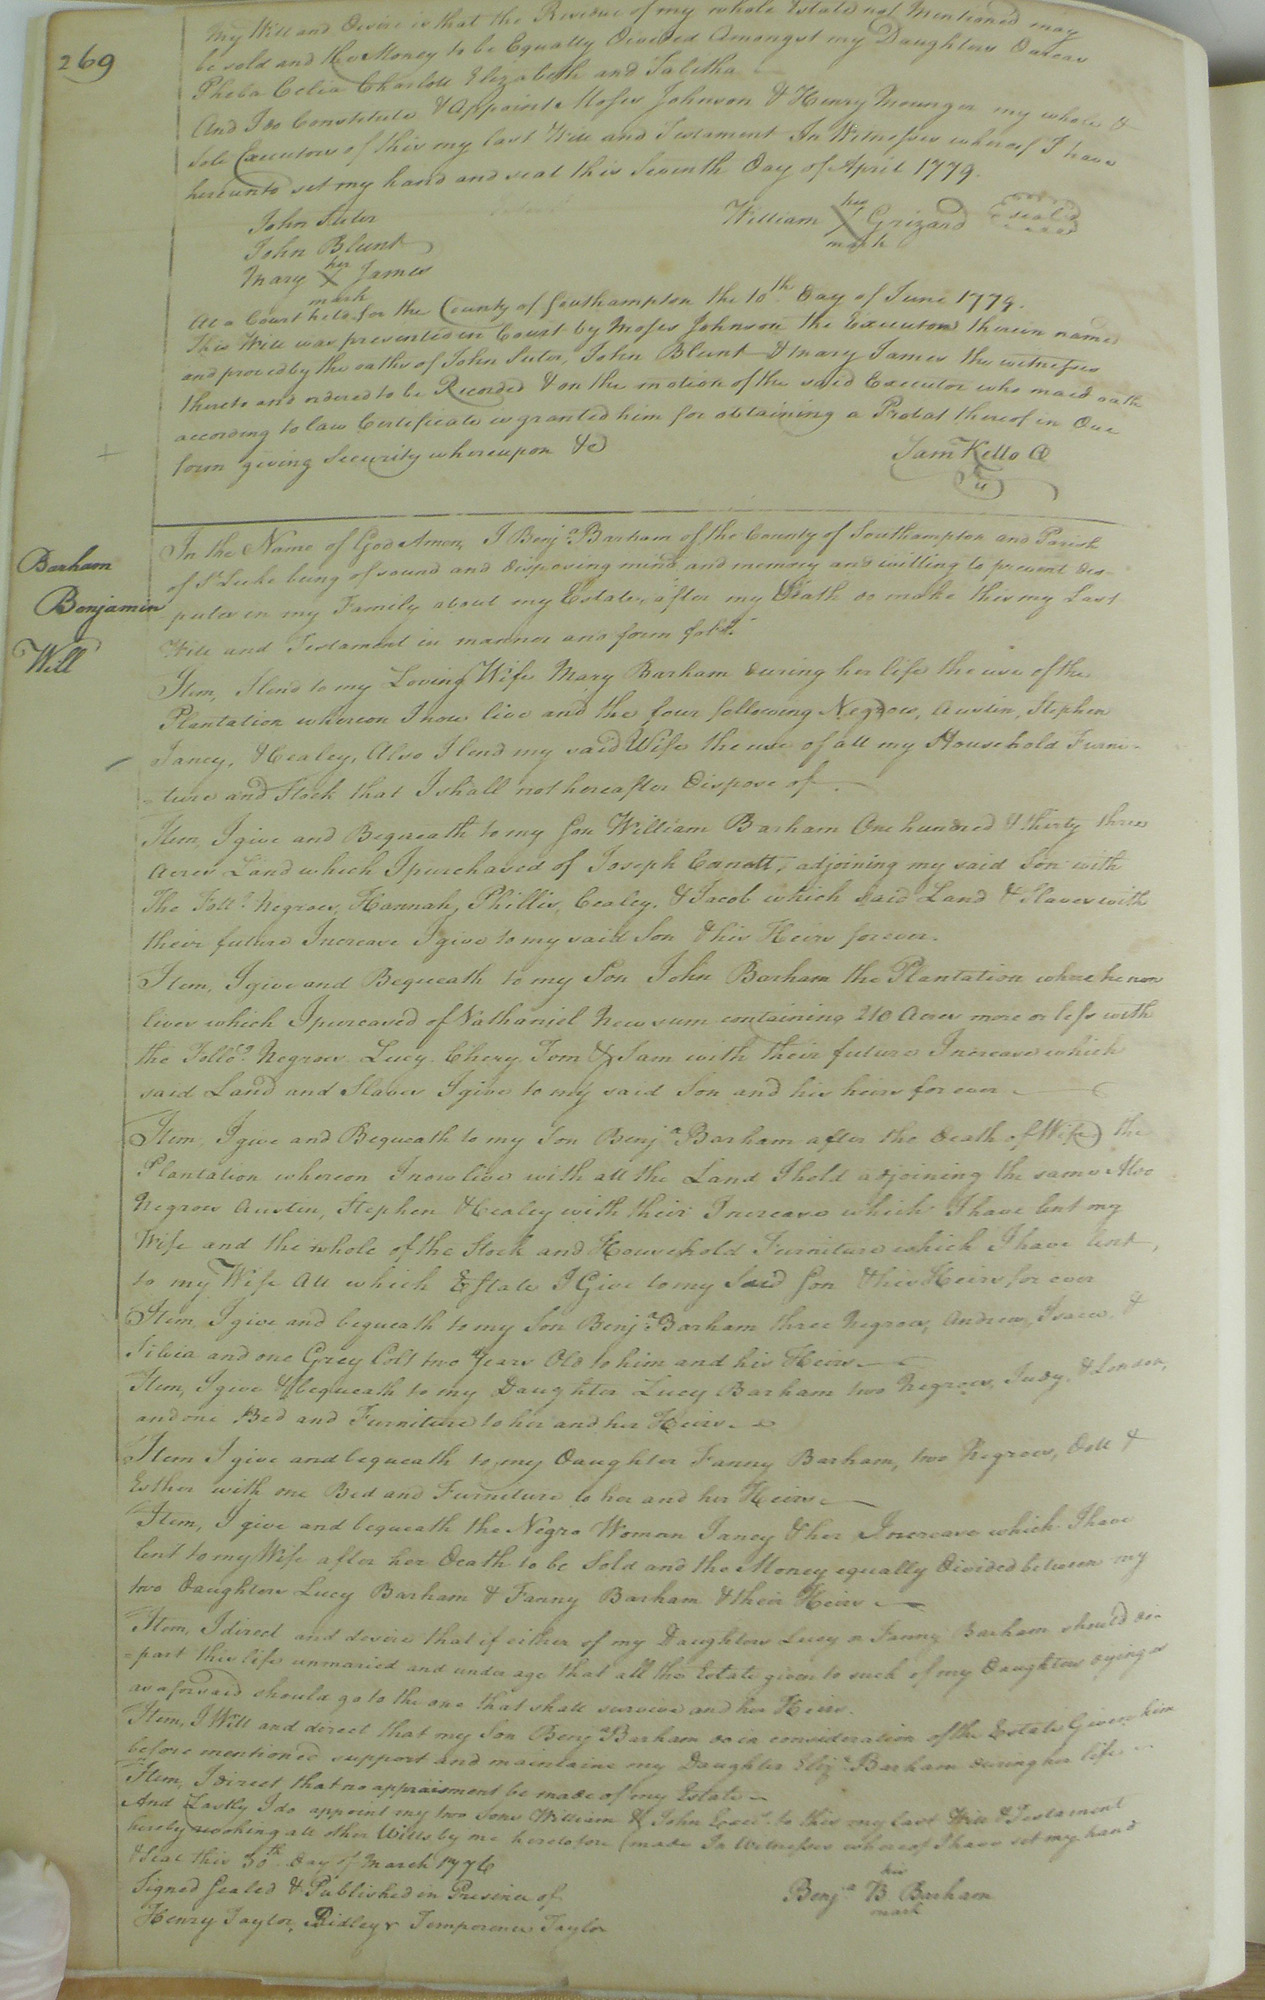 269
My Will and Desire is that the Residue of my whole Estate not Mentioned may
be sold and the Money to be Equally Divided Amongst my Daughters Darcas
Pheba Celia Charlott Elizabeth and Tabitha
And I do Constitute & Appoint Moses Johnson & Henry Mounger my whole &
Sole Executors of this my last Will and Testament In Witnesses whereof I have
hereunto set my hand and seal this Seventh Day of April 1779.
John Suter
John Blunt
Mary X James
her
mark
William X Grizard
his
mark
seal
At a Court held for the County of Southampton the 10th Day of June 1779.
This Will was presented in Court by Moses Johnson the Executor therein named
and proved by the oaths of John Suter, John Blunt & Mary James the witnesses
thereto and ordered to be Recorded & on the motion of the said Executor who made oath
according to law Certificate is granted him for obtaining a Probat thereof in Due
form giving Security whereupon &c
Sam Kello C
Barham
Benjamin
Will
In the Name of God Amen, I Benja Barham of the County of Southampton and Parish
of St Luke being of sound and disposing mind and memory and willing to prevent dis-
-putes in my Family about my Estate, after my Death do make this my Last
Will and Testament in manner and form follg.
Item, I lend to my Loving Wife Mary Barham during her life the use of the
Plantation whereon I now live and the four following Negroes, Austin, Stephen
Janey, & Cealey, Also I lend my said Wife the use of all my Household Furni-
-ture and Stock that I shall not hereafter Dispose of.
Item, I give and Bequeath to my Son William Barham One hundred & thirty three
Acres Land which I purchased of Joseph adjoining my said Son with
The Follg Negroes, Hannah, Phillis, Cealey, & Jacob which said Land & Slaves with
their future Increase I give to my said Son & his Heirs forever.
Item, I give and Bequeath to my Son John Barham the Plantation where he now
lives which I purcased of Nathaniel Newsum containing 210 Acres more or less with
the Follog Negroes Lucy, Chery, Tom & Sam with their future Increase which
said Land and Slaves I give to my said Son and his heirs for ever
Item, I give and Bequeath to my Son Benja Barham after the death of Wife the
Plantation whereon I now live with all the Land I hold adjoining the same Also
Negroes Austin, Stephen & Cealey with their Increase which I have lent my
Wife and the whole of the Stock and Household Furniture which I have lent,
to my Wife All which Estate I Give to my Said Son & his Heirs for ever
Item, I give and bequeath to my Son Benja Barham three Negroes, Andrew, Isaac, &
Silvia and one Grey Colt two Years Old to him and his Heirs
Item, I give & bequeath to my Daughter Lucy Barham two Negroes, Judy, & London,
and one Bed and Furniture to her and her Heirs
Item I give and bequeath to my Daughter Fanny Barham, two Negroes, Doll &
Esther with one Bed and Furniture to her and her Heirs
Item, I give and bequeath the Negro Woman Janey & her Increase which I have
lent to my Wife after her Death to be Sold and the Money equally Divided between my
two Daughters Lucy Barham & Fanny Barham & their Heirs
Item, I direct and desire that if either of my Daughters Lucy or Fanny Barham should de-
-part this life unmaried and under age that all the Estate given to such of my Daughters dying as
as aforesaid should go to the one that shall survive and her Heirs.
Item, I Will and direct that my Son Benja Barham do in consideration of the Estate Given him
before mentioned support and maintaine my Daughter Eliza Barham during her life
Item, I direct that no appraisment be made of my Estate
And Lastly I do appoint my two Sons William & John Exec to this my last Will & Testament
hereby revoking all other Wills by me heretofore made In Witnesses whereof I have set my hand
& Seal this 30th Day of March 1776
Signed Sealed & Published in Presince of
Henry Taylor, Ridley & Temperence Taylor
his
Benja B Barham
mark